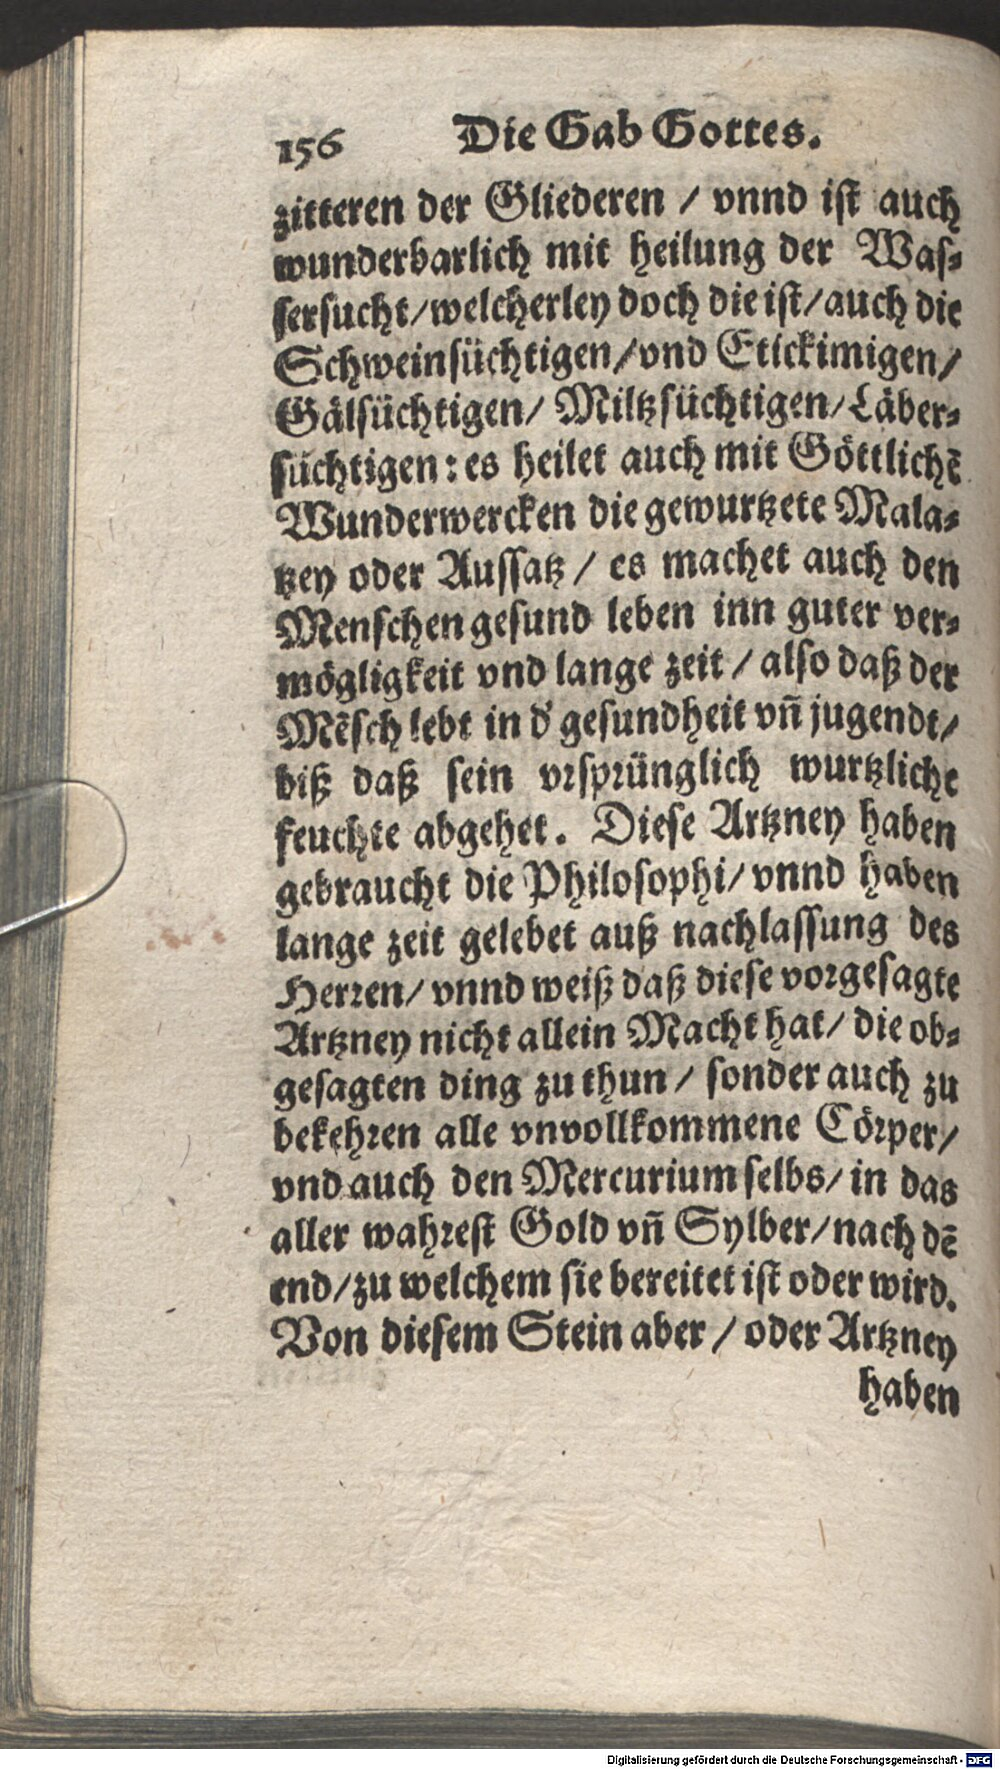 156 Die Gab Gottes.
zitteren der Gliederen / vnnd ist auch
wunderbarlich mit heilung der Was-
sersucht/welcherley doch die ist/auch die
Schweinsüchtigen/vnd Etickimigen/
Gälsüchtigen/ Miltzsüchtigen/Läber-
süchtigen: es heilet auch mit Göttlichẽ
Wunderwercken die gewurtzete Mala-
tzey oder Aussatz / es machet auch den
Menschen gesund leben inn guter ver-
mögligkeit vnd lange zeit / also daß der
Mẽsch lebt in d' gesundheit vñ jugendt/
biß daß sein vrsprünglich wurtzliche
feuchte abgehet. Diese Artzney haben
gebraucht die Philosophi/ vnnd haben
lange zeit gelebet auß nachlassung des
Herren/ vnnd weiß daß diese vorgesagte
Artzney nicht allein Macht hat/ die ob-
gesagten ding zu thun / sonder auch zu
bekehren alle vnvollkommene Cörper/
vnd auch den Mercurium selbs/ in das
aller wahrest Gold vñ Sylber/nach dẽ
end/zu welchem sie bereitet ist oder wird.
Von diesem Stein aber / oder Artzney
haben
Digitalisierung gefördert durch die Deutsche Forschungsgemeinschaft - DFG